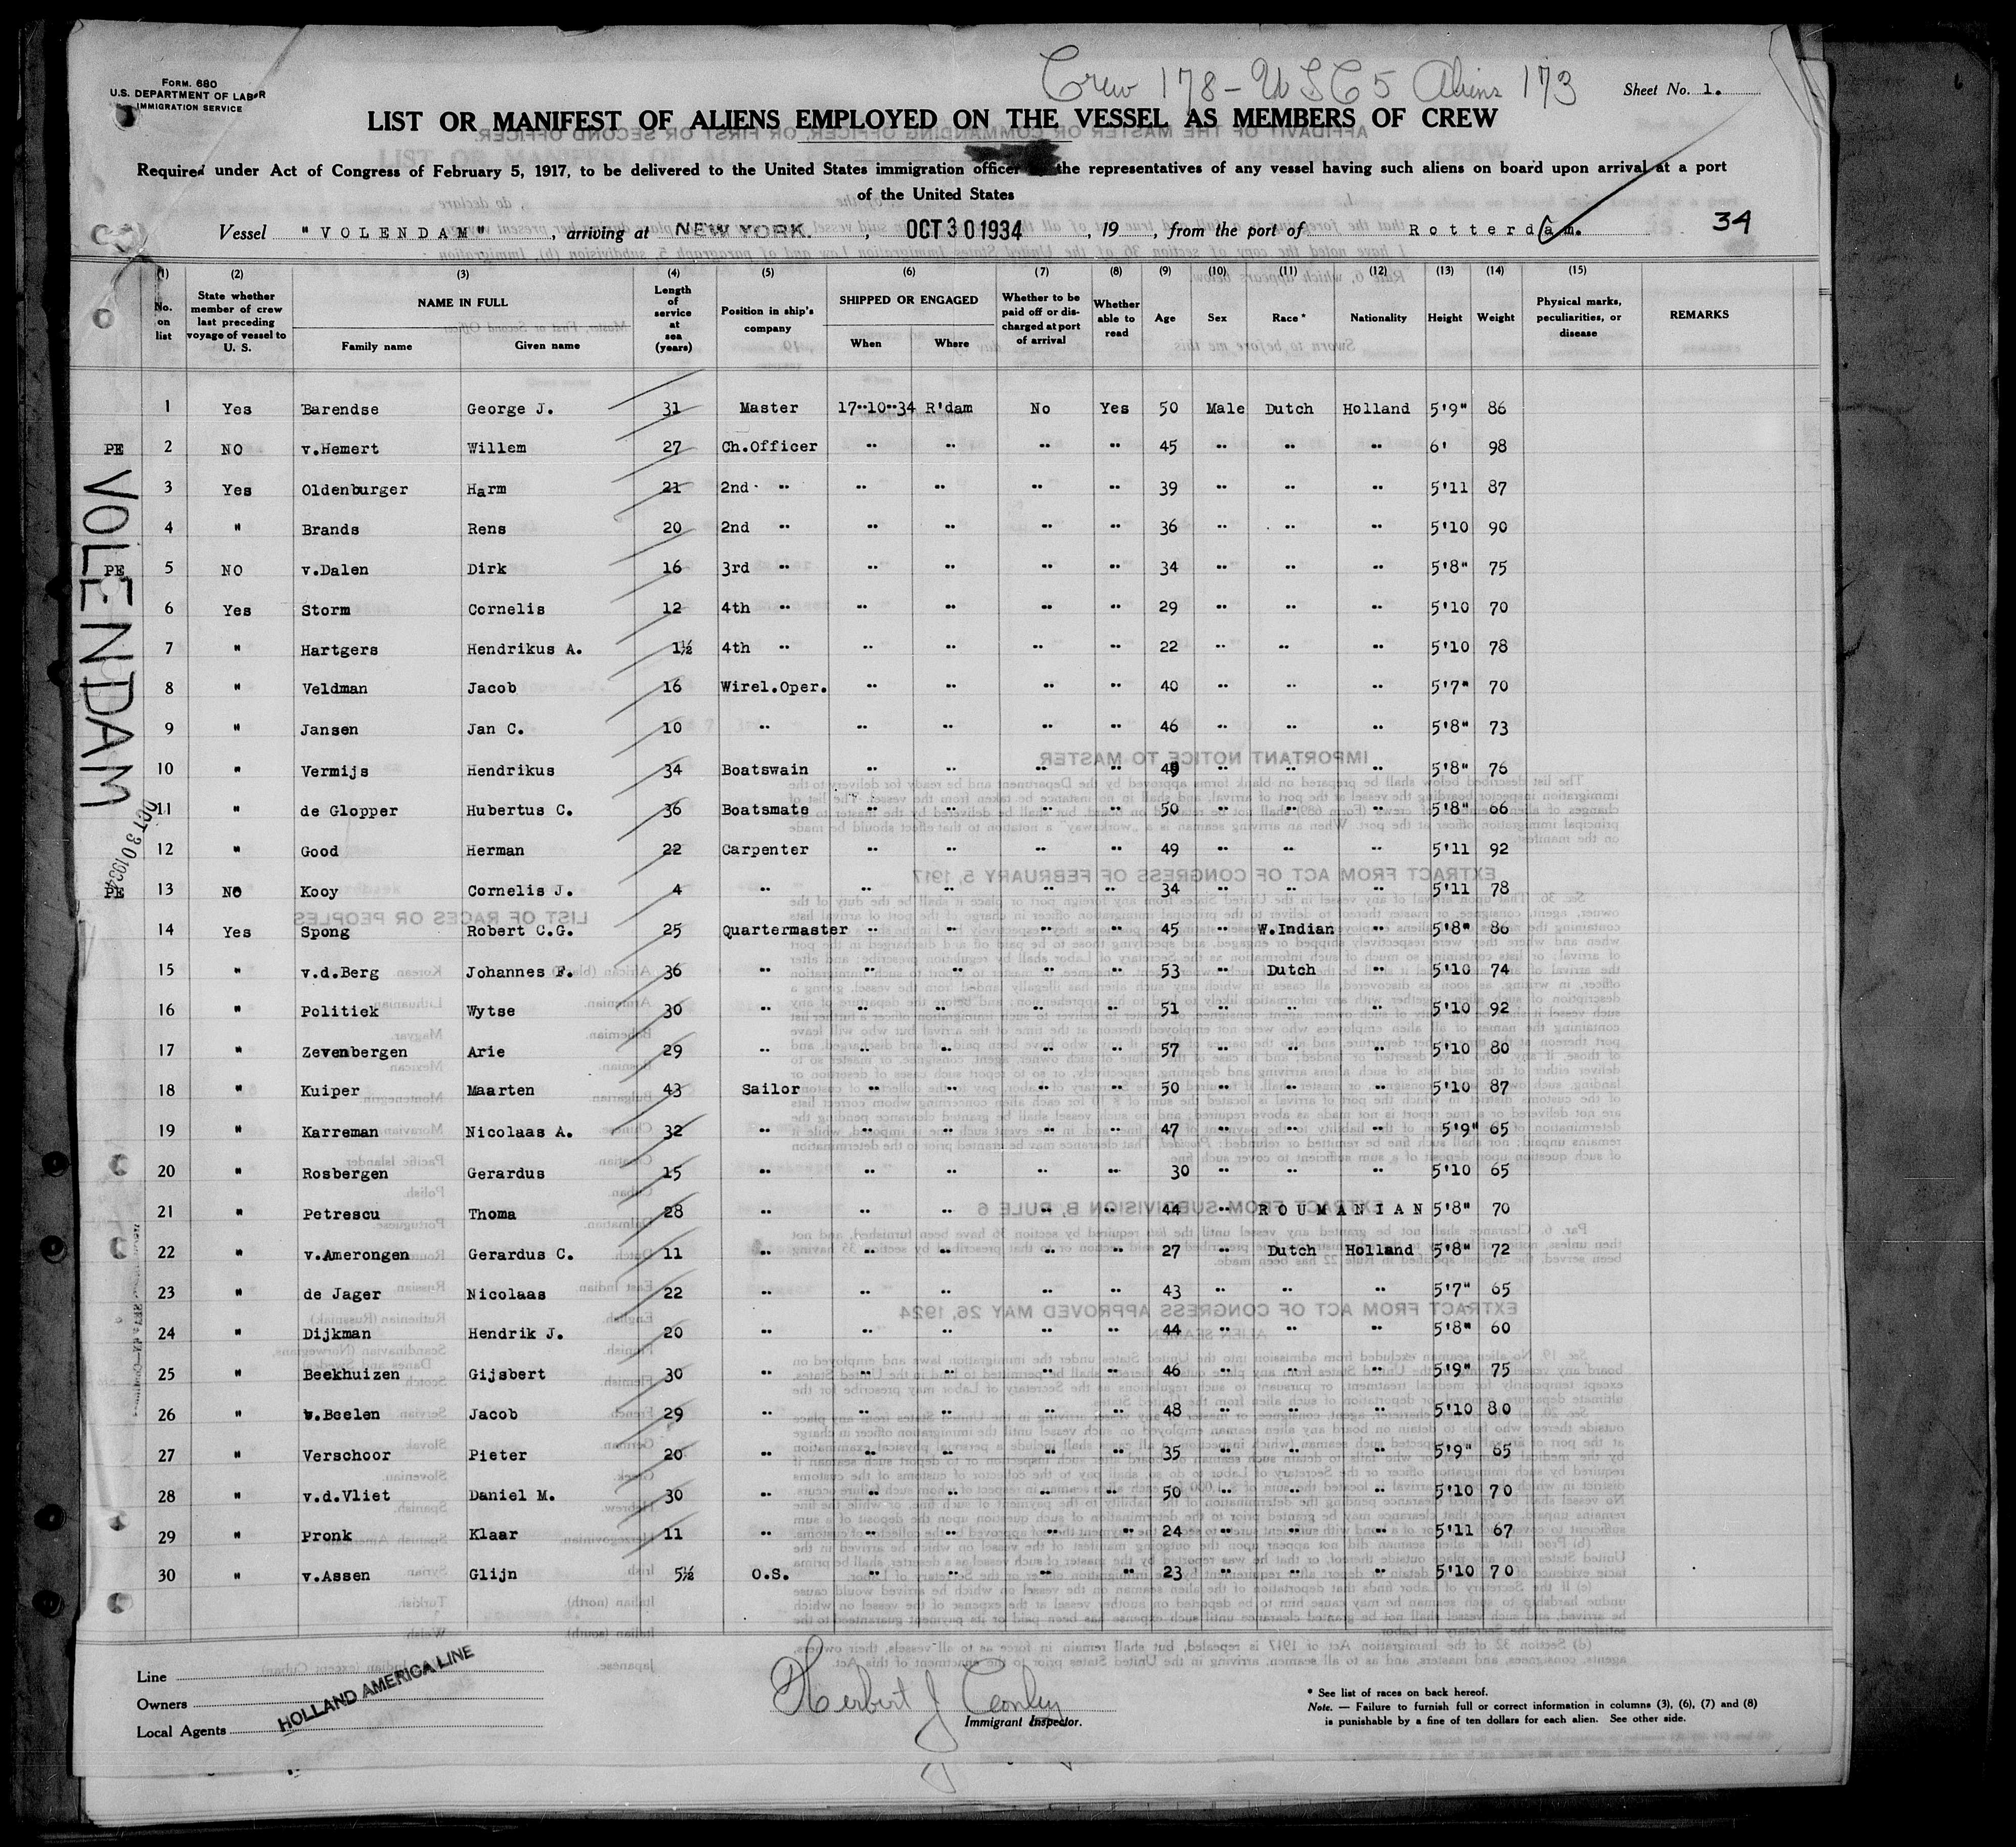 Crew 178 - USC 5 Aliens 173
FORM. 680
U.S. DEPARTMENT OF LABOR
IMMIGRATION SERVICE
Sheet No. 1.
LIST OR MANIFEST OF ALIENS EMPLOYED ON THE VESSEL AS MEMBERS OF CREW
Required under Act of Congress of February 5, 1917, to be delivered to the United States immigration officer the representatives of any vessel having such aliens on board upon arrival at a port
of the United States
Vessel "VOLENDAM" , arriving at NEW YORK. , OCT 30 1934 , 19 , from the port of Rotterdam. 34
(1) (2) (3) (4) (5) (6) (7) (8) (9) (10) (11) (12) (13) (14) (15)
No. on list | State whether member of crew last preceding voyage of vessel to U. S. | NAME IN FULL Family name Given name | Length of service at sea (years) | Position in ship's company | SHIPPED OR ENGAGED When Where | Whether to be paid off or discharged at port of arrival | Whether able to read | Age | Sex | Race* | Nationality | Height | Weight | Physical marks, peculiarities, or disease | REMARKS
1 Yes Barendse George J. 31 Master 17"10"34 R'dam No Yes 50 Male Dutch Holland 5'9" 86
PE 2 NO v.Hemert Willem 27 Ch.Officer " " " " 45 " " " 6' 98
3 Yes Oldenburger Harm 21 2nd " " " " " 39 " " " 5'11 87
4 " Brands Rens 20 2nd " " " " " 36 " " " 5'10 90
PE 5 NO v.Dalen Dirk 16 3rd " " " " " 34 " " " 5'8" 75
6 Yes Storm Cornelis 12 4th " " " " " 29 " " " 5'10 70
7 " Hartgers Hendrikus A. 1½ 4th " " " " " 22 " " " 5'10 78
8 " Veldman Jacob 16 Wirel.Oper. " " " " 40 " " " 5'7" 70
9 " Jansen Jan C. 10 " " " " " 46 " " " 5'8" 73
10 " Vermijs Hendrikus 34 Boatswain " " " " 49 " " " 5'8" 76
11 " de Glopper Hubertus C. 36 Boatsmate " " " " 50 " " " 5'8" 66
12 " Good Herman 22 Carpenter " " " " 49 " " " 5'11 92
PE 13 NO Kooy Cornelis J. 4 " " " " " 34 " " " 5'11 78
14 Yes Spong Robert C.G. 25 Quartermaster " " " " 45 " W.Indian " 5'8" 86
15 " v.d.Berg Johannes F. 36 " " " " " 53 " Dutch " 5'10 74
16 " Politiek Wytse 30 " " " " " 51 " " " 5'10 92
17 " Zevenbergen Arie 29 " " " " " 57 " " " 5'10 80
18 " Kuiper Maarten 43 Sailor " " " " 50 " " " 5'10 87
19 " Karreman Nicolaas A. 32 " " " " " 47 " " " 5'9" 65
20 " Rosbergen Gerardus 15 " " " " " 30 " " " 5'10 65
21 " Petrescu Thoma 28 " " " " " 44 " ROUMANIAN 5'8" 70
22 " v.Amerongen Gerardus C. 11 " " " " " 27 " Dutch Holland 5'8" 72
23 " de Jager Nicolaas 22 " " " " " 43 " " " 5'7" 65
24 " Dijkman Hendrik J. 20 " " " " " 44 " " " 5'8" 60
25 " Beekhuizen Gijsbert 30 " " " " " 46 " " " 5'9" 75
26 " v.Beelen Jacob 29 " " " " " 48 " " " 5'10 80
27 " Verschoor Pieter 20 " " " " " 35 " " " 5'9" 65
28 " v.d.Vliet Daniel M. 30 " " " " " 50 " " " 5'10 70
29 " Pronk Klaar 11 " " " " " 24 " " " 5'11 67
30 " v.Assen Glijn 5½ O.S. " " " " 23 " " " 5'10 70
VOLENDAM
OCT 30 1934
Line
Owners
Local Agents
HOLLAND AMERICA LINE
Herbert J Conley
Immigrant Inspector.
* See list of races on back hereof.
Note. — Failure to furnish full or correct information in columns (3), (6), (7) and (8)
is punishable by a fine of ten dollars for each alien. See other side.